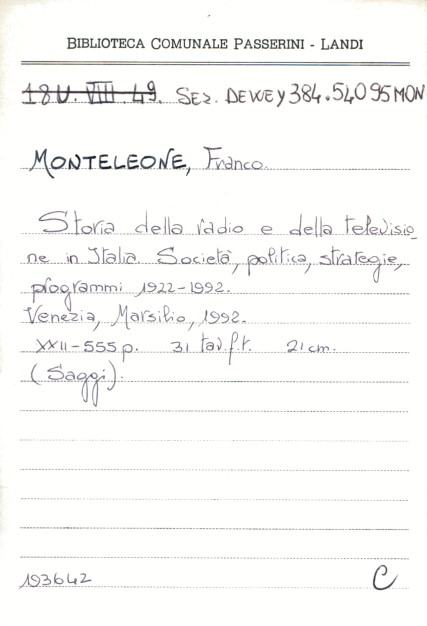 BIBLIOTECA COMUNALE PASSERINI - LANDI
18U. VIII. 49. SEZ. DEWEY 384.54095 MON
MONTELEONE, Franco.
Storia della radio e della televisio_
ne in Italia. Società, politica, strategie,
programmi 1922-1992.
Venezia, Marsilio, 1992.
XXII-555 p. 31 tav.f.t. 21 cm.
(Saggi).
193642 C